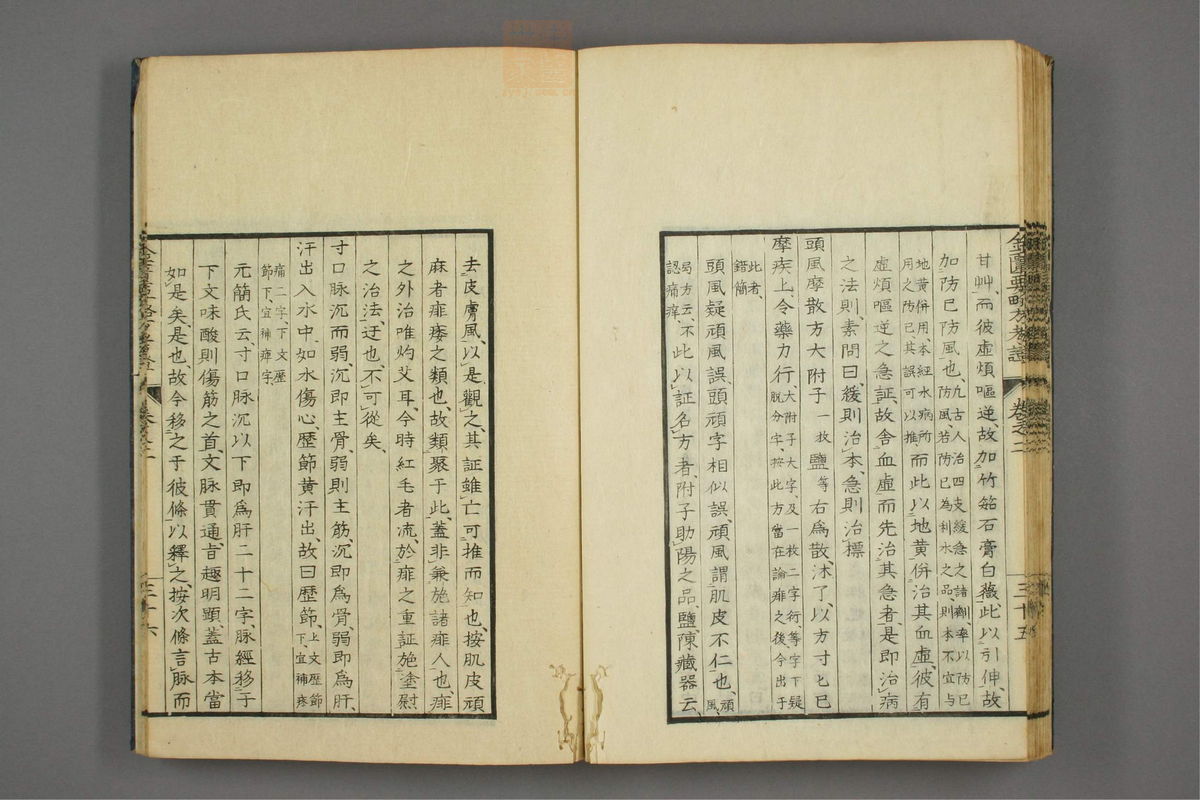 甘艸、而彼虛煩嘔逆、故加竹筎石膏白薇、此以引伸、故
加防已防風也、凢古人治四支緩急之諸劑、率以防已
防風、若防已為利水之品、則本不宜与
地黄併用、本經水病所
用之防已、其誤可以推、而此以地黄併治其血虛、彼有
虛煩嘔逆之急証、故舍血虛而先治其急者、是即治病
之法則、素問曰、緩則治本、急則治標
頭風摩散方大附子一枚鹽等右為散、沐了、以方寸匕巳
摩疾上、令藥力行、大附子大字、及一枚二字衍、等字下疑
脱分字、按此方當在論痱之後、今出于
此者、
錯簡
頭風疑頑風誤、頭頑字相似誤、頑風謂肌皮不仁也、頑
風、
局方云、不
認痛痒、此以証名方者、附子助陽之品、鹽陳藏器云、
金匱要略方
卷之二
三十五
去皮膚風、以是觀之、其証雖亡可推而知也、按肌皮頑
麻者痱痿之類也、故類聚于此、蓋非兼施諸痱人也、痱
之外治唯灼艾耳、今時紅毛者流、於痱之重証施塗慰
之治法、迂也、不可從矣、
寸口脉沉而弱、沉即主骨、弱則主筋、沉即為骨、弱即為肝、
汗出入水中、如水傷心、歷節黄汗出、故曰歷節、上文歷節
下、宜補疼
痛二字、下文歷
節下、宜補痺字、
元簡氏云、寸口脉沉以下、即為肝二十二字、脉經移于
下文味酸則傷筋之首、文脉貫通、旨趣明顯、蓋古本當
如是矣、是也、故今移之于彼條以釋之、按次條言脉而
三十六